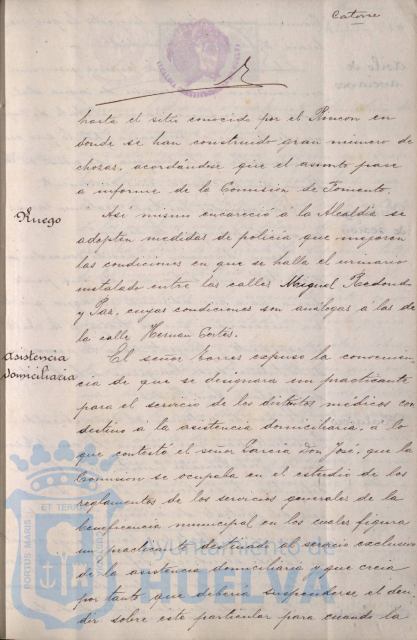 Catorce
hasta el sitio conocido por el Rincon en
donde se han construido gran número de
chozas, acordándose que el asunto pase
á informe de la Comisión de Fomento.
Ruego
Asi mismo encareció á la Alcaldía se
adopten medidas de policia que mejoren
las condiciones en que se halla el urinario
instalado entre las calles Miguel Redondo
y Paz, cuyas condiciones son análogas á las de
la calle Hernan Cortés.
Asistencia
domiciliaria
El señor Torres expuso la convenien-
cia de que se designara un practicante
para el servicio de los distritos médicos con
destino á la asistencia domiciliaria, á lo
que contestó el señor Garcia Don José, que la
Comision se ocupaba en el estudio de los
reglamentos de los servicios generales de la
beneficencia municipal en los cuales figura
un practicante destinado al servicio exclusivo
de la asistencia domiciliaria y que creia
por tanto que deberia suspenderse el deci-
dir sobre este particular para cuando la
PORTUS MARIS ET TERRAE CUSTODIA
Ayuntamiento de
HUELVA